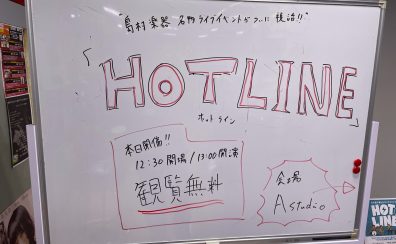 "島村楽器 名物ライブイベントがついに復活!!"
「HOTLINE」
ホットライン
本日開催!!
12:30開場/13:00開演
観覧無料
会場
Astudio
HOT
LINE